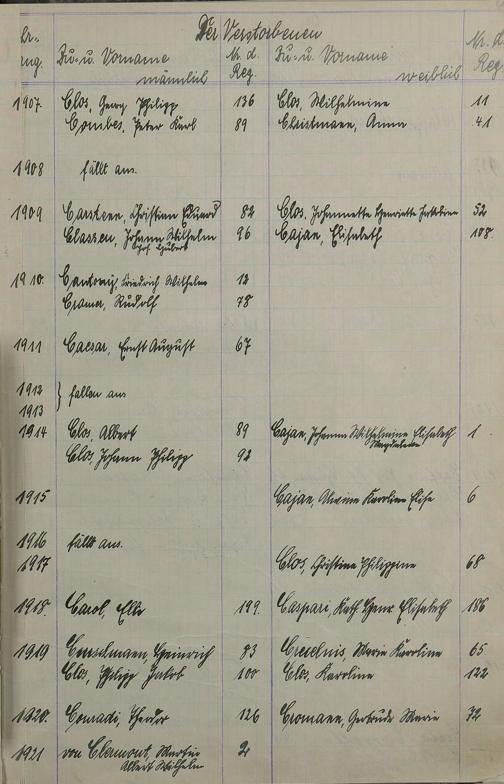 Der Verstorbenen
Zu- u. Vorname männlich Nr. d. Reg. Zu- u. Vorname weiblich Nr. d. Reg.
1907. Clos, Georg Philipp 136 Clos, Wilhelmine 11
Combes, Peter Karl 89 Christmann, Anna 41
1908 fällt aus.
1909 Carstsen, Christian Eduard 82 Clos, Johannette Henriette 52
Classen, Johann Wilhelm 96 Cajan, Elisabeth 108.
1910. Friedrich Wilhelm 12
Cramer, Rudolf 78
1911 Caesar, Ernst August 67
1912 } fallen aus
1913
1914 Clos, Albert 89 Cajan, Johanna Wilhelmine Elisabeth 1
Magdalena
Clos, Johann Philipp 92
1915 Cajan, Karoline Elise 6
1916 fällt aus.
1917 Clos, Christine Philippine 68
1918. Carol, Elli 199. Caspari, Kath. Henr. Elisabeth 186
1919 Heinrich 83 Marie Karoline 65
Clos, Philipp Jakob 100 Clos, Karoline 122
1920. Conradi, Theodor 126 Cromann, Gertrude Marie 72
1921 von Clermont, Martin 2
Albert Wilhelm